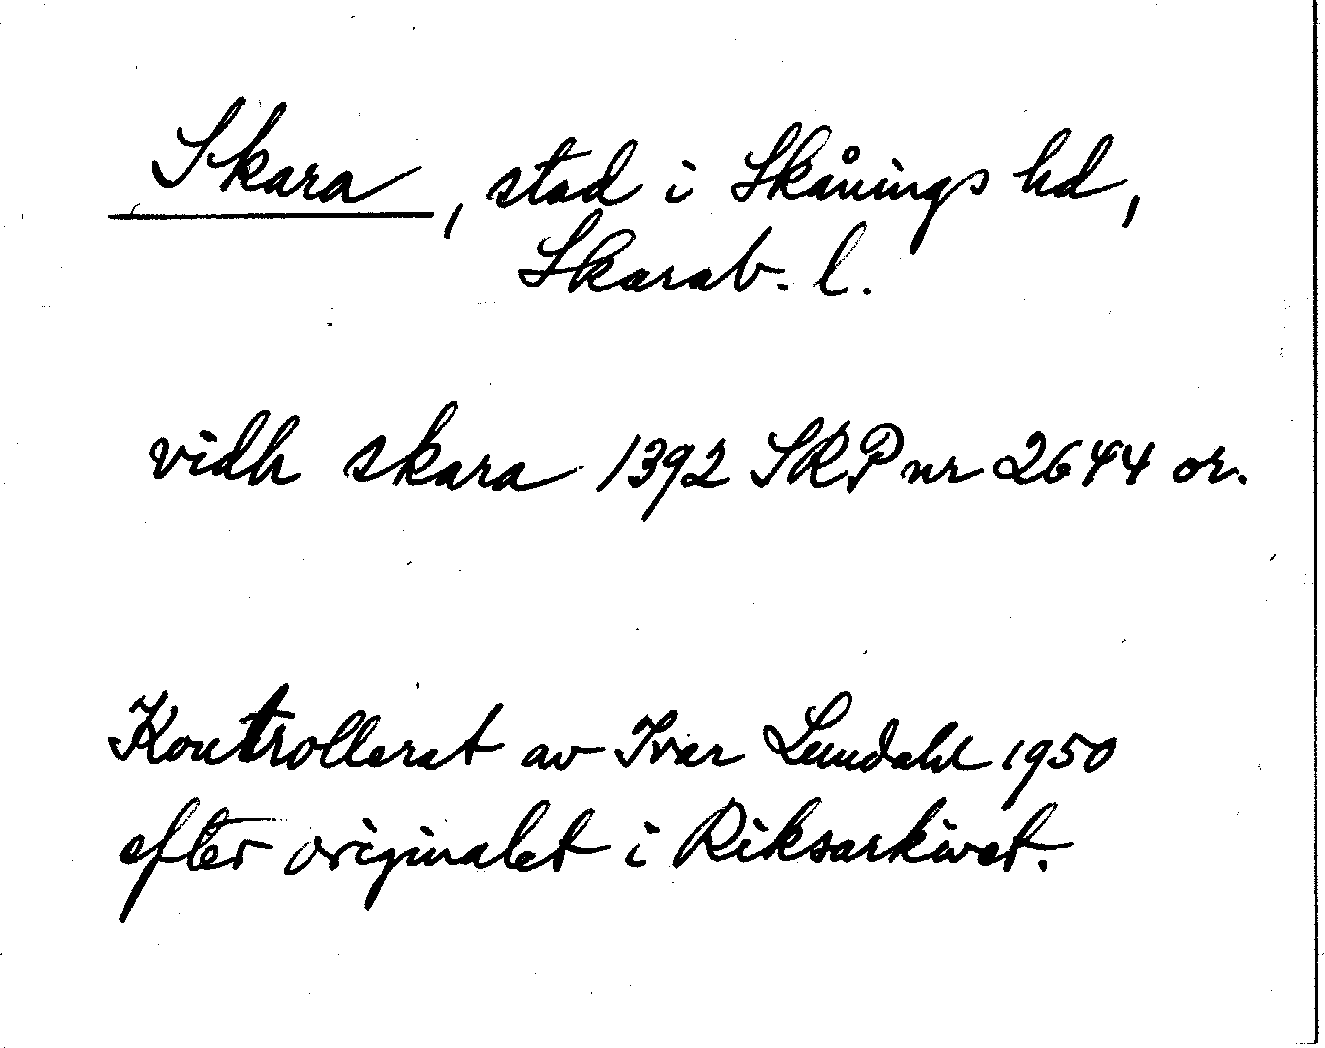 Skara, stad i Skånings hd,
Skarab. l.
vidh skara 1392 SRP nr 2644 or.
Kontrollerat av Ivar Lundahl 1950
efter originalet i Riksarkivet.